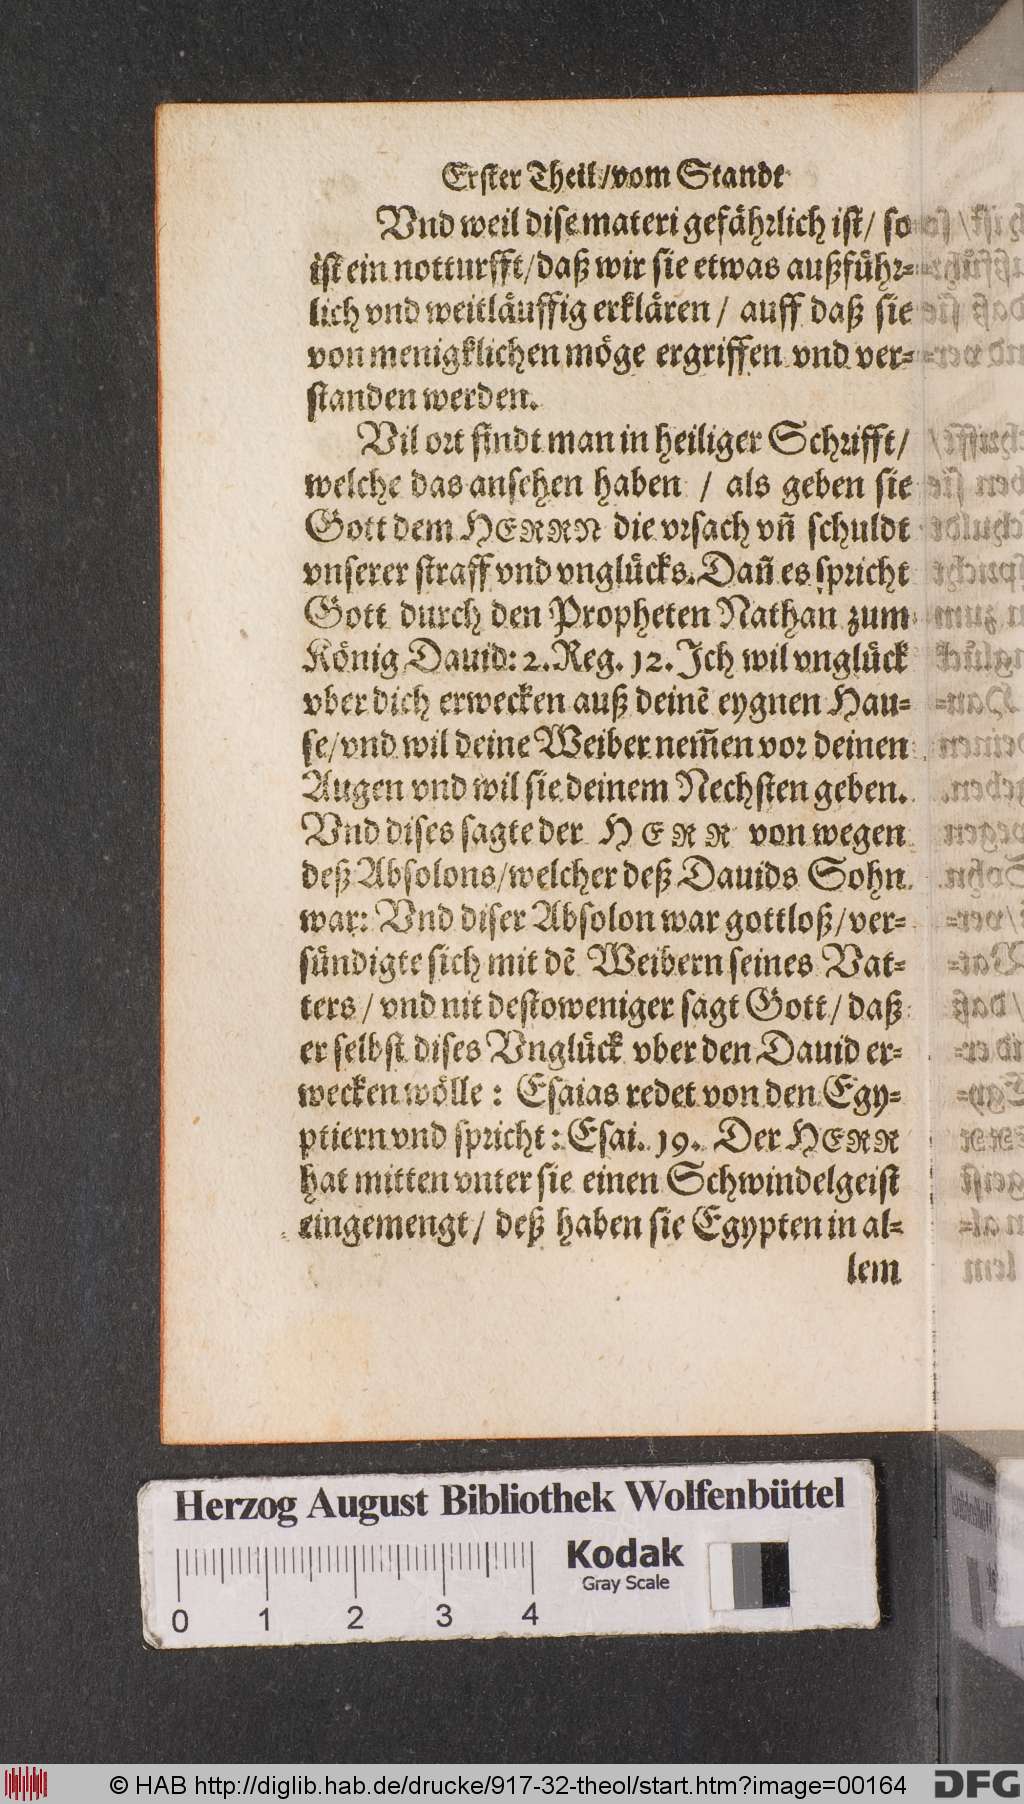 Erster Theil/vom Stande
Vnd weil dise materi gefährlich ist/ so
ist ein notturfft/daß wir sie etwas außführ-
lich vnd weitläuffig erklären / auff daß sie
von menigklichen möge ergriffen vnd ver-
standen werden.
Vil ort findt man in heiliger Schrifft/
welche das ansehen haben / als geben sie
Gott dem HERRN die vrsach vn̄ schuldt
vnserer straff vnd vnglücks. Dan̄ es spricht
Gott durch den Propheten Nathan zum
König Dauid: 2. Reg. 12. Jch wil vnglück
vber dich erwecken auß deinē eygnen Hau-
se/vnd wil deine Weiber nem̄en vor deinen
Augen vnd wil sie deinem Nechsten geben.
Vnd dises sagte der HERR von wegen
deß Absolons/welcher deß Dauids Sohn
war: Vnd diser Absolon war gottloß/ver-
sündigte sich mit dē Weibern seines Vat-
ters / vnd nit destoweniger sagt Gott/ daß
er selbst dises Vnglück vber den Dauid er-
wecken wölle : Esaias redet von den Egy-
ptiern vnd spricht : Esai. 19. Der HERR
hat mitten vnter sie einen Schwindelgeist
eingemengt/ deß haben sie Egypten in al-
lem
Herzog August Bibliothek Wolfenbüttel
Kodak
Gray Scale
0 1 2 3 4
© HAB http://diglib.hab.de/drucke/917-32-theol/start.htm?image=00164
DFG